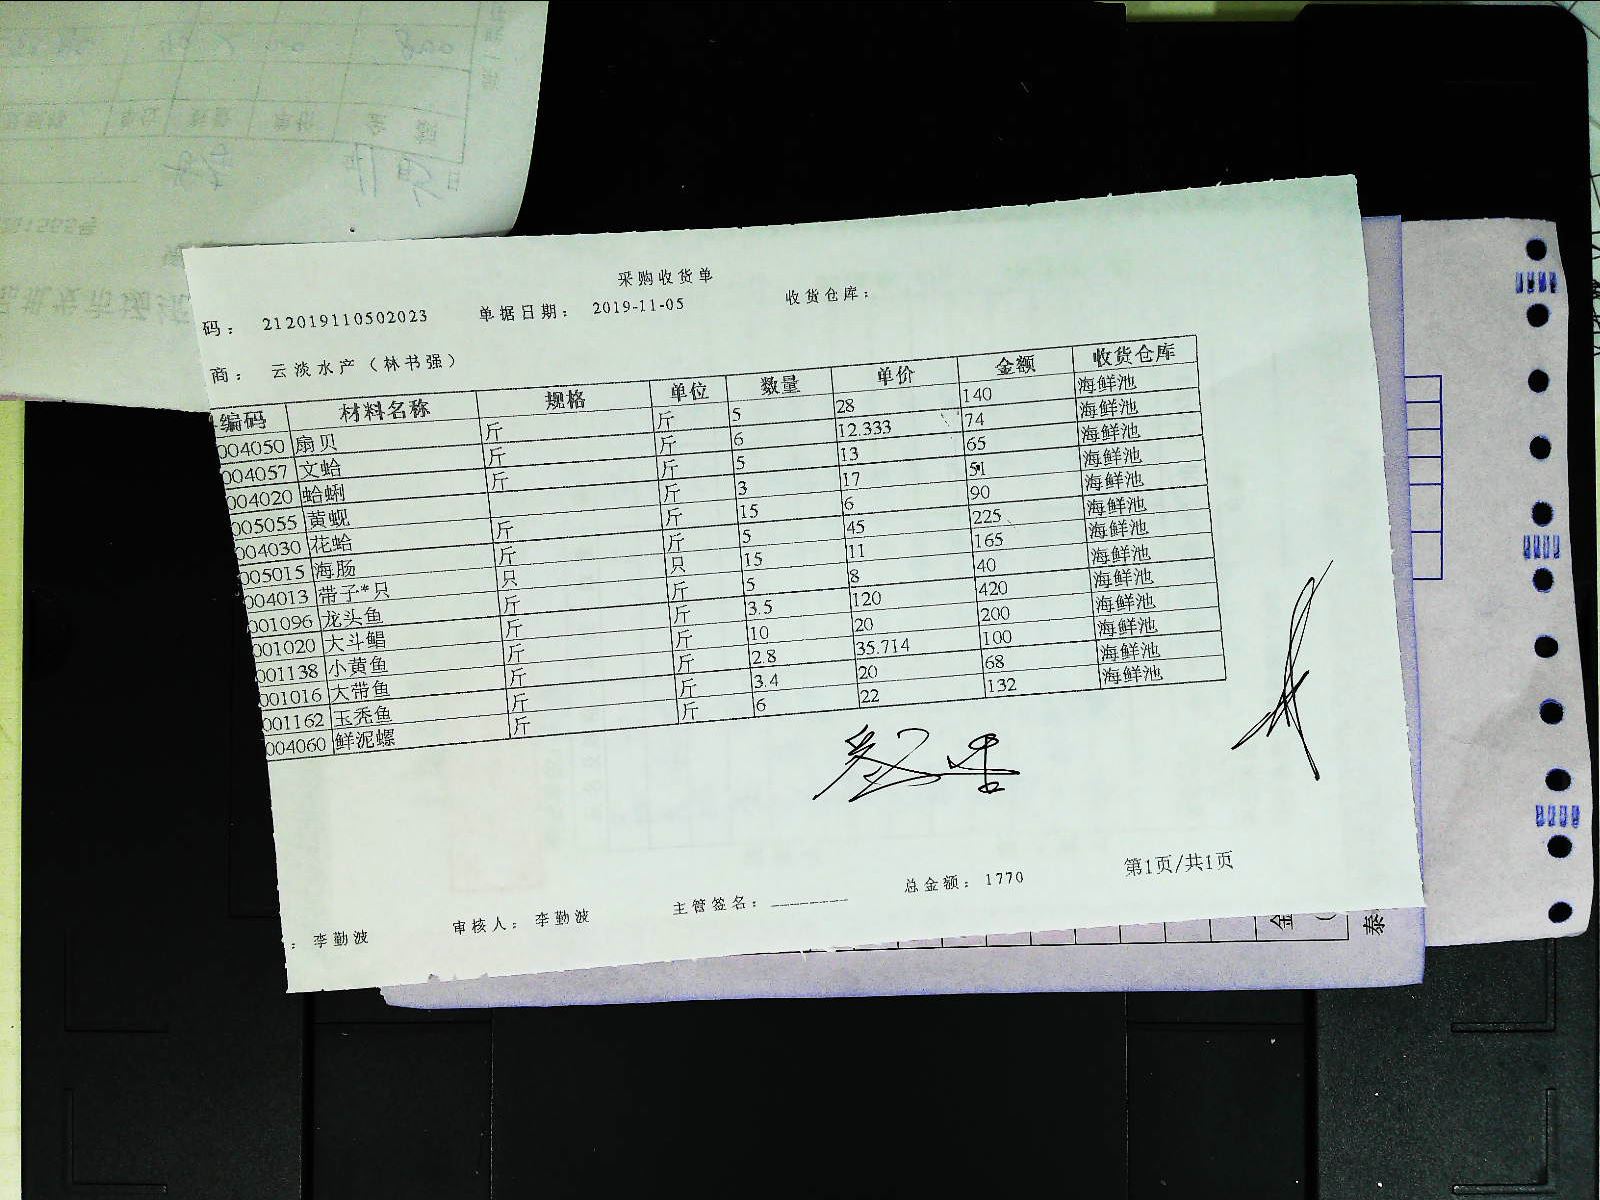 采购收货单
码： 212019110502023 单据日期： 2019-11-05 收货仓库：
商： 云淡水产（林书强）
编码 材料名称 规格 单位 数量 单价 金额 收货仓库
004050 扇贝 斤 斤 5 28 140 海鲜池
004057 文蛤 斤 斤 6 12.333 74 海鲜池
004020 蛤蜊 斤 斤 5 13 65 海鲜池
005055 黄蚬 斤 3 17 51 海鲜池
004030 花蛤 斤 斤 15 6 90 海鲜池
005015 海肠 斤 斤 5 45 225 海鲜池
004013 带子*只 只 只 15 11 165 海鲜池
001096 龙头鱼 斤 斤 5 8 40 海鲜池
001020 大斗鲳 斤 斤 3.5 120 420 海鲜池
001138 小黄鱼 斤 斤 10 20 200 海鲜池
001016 大带鱼 斤 斤 2.8 35.714 100 海鲜池
001162 玉秃鱼 斤 斤 3.4 20 68 海鲜池
004060 鲜泥螺 斤 斤 6 22 132 海鲜池
： 李勤波 审核人： 李勤波 主管签名： 总金额： 1770 第1页/共1页
金
泰